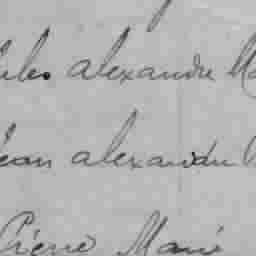 Jules alexandre
Jean alexandre
Pierre Marie